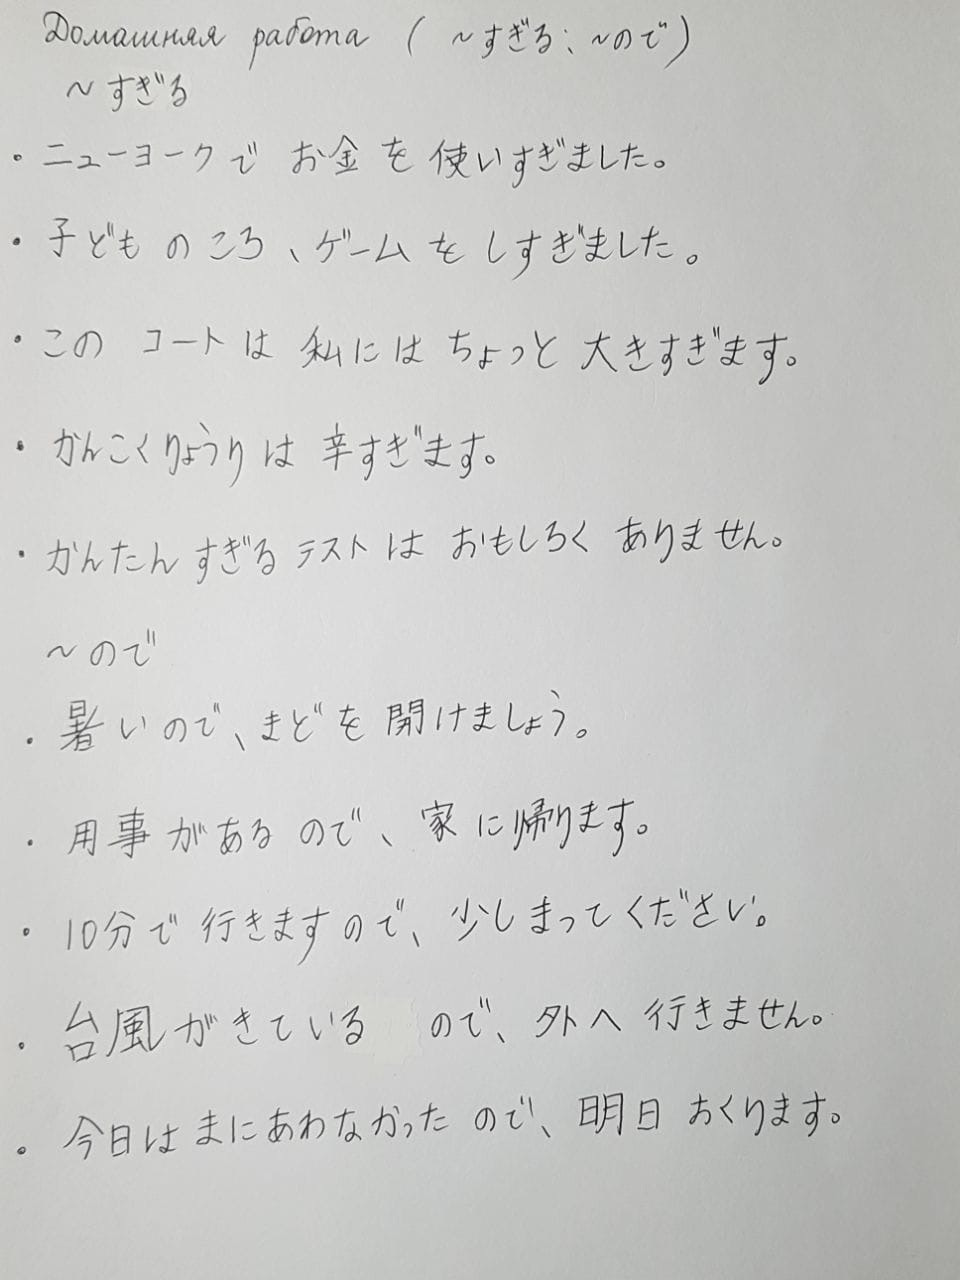 Домашняя работа ( ~すぎる; ~ので)
~すぎる
・ニューヨークで お金を使いすぎました。
・子どものころ、ゲームをしすぎました。
・このコートは私にはちょっと大きすぎます。
・かんこくりょうりは辛すぎます。
・かんたんすぎるテストはおもしろくありません。
~ので
・暑いので、まどを開けましょう。
・用事があるので、家に帰ります。
・10分で行きますので、少しまってください。
・台風がきているので、外へ行きません。
・今日はまにあわなかったので、明日おくります。